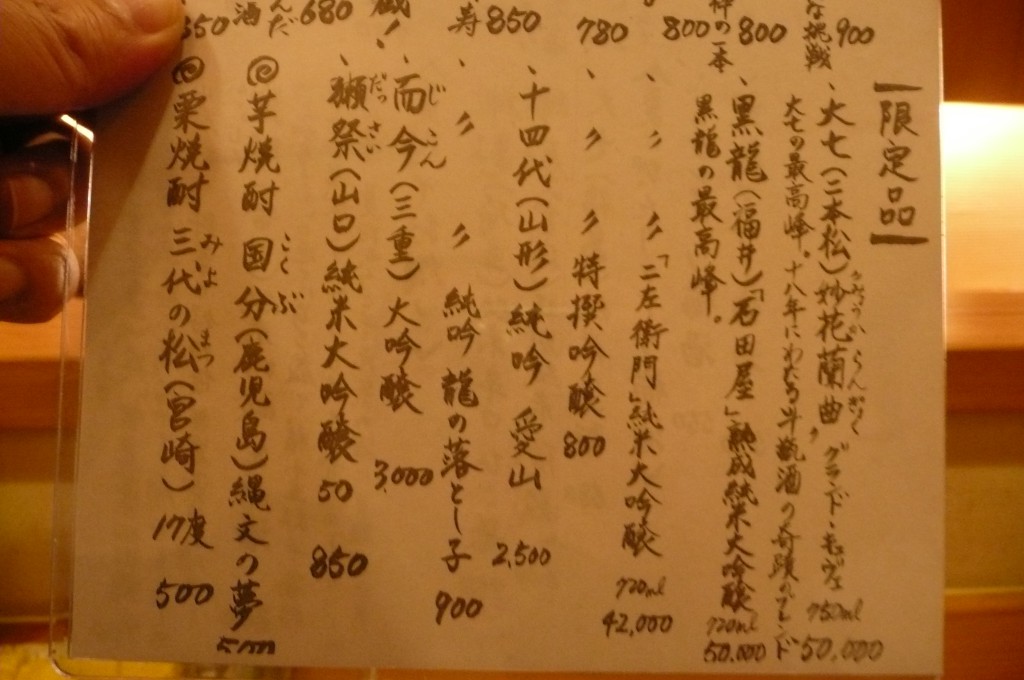 な挑戦 900
神の一本 800
800
780
寿 850
蔵！
んだ 680
酒
350
限定品
、大七（二本松）妙花蘭曲 グランド・キュヴェ 750ml 50,000
みょうからんきょく
大七の最高峰。十八年にわたる斗瓶酒の奇蹟のブレンド
、黒龍（福井）「石田屋」熟成純米大吟醸 720ml 50,000
黒龍の最高峰。
、〃 〃「二左衛門」純米大吟醸 720ml 42,000
、〃 〃 特撰吟醸 800
、十四代（山形）純吟 愛山 2,500
、〃 〃 純吟 龍の落とし子 900
、而今（三重）大吟醸 3,000
じこん
、獺祭（山口）純米大吟醸 50 850
だっさい
◎芋焼酎 国分（鹿児島）縄文の夢 500
こくぶ
◎栗焼酎 三代の松（宮崎）17度 500
みよ まつ